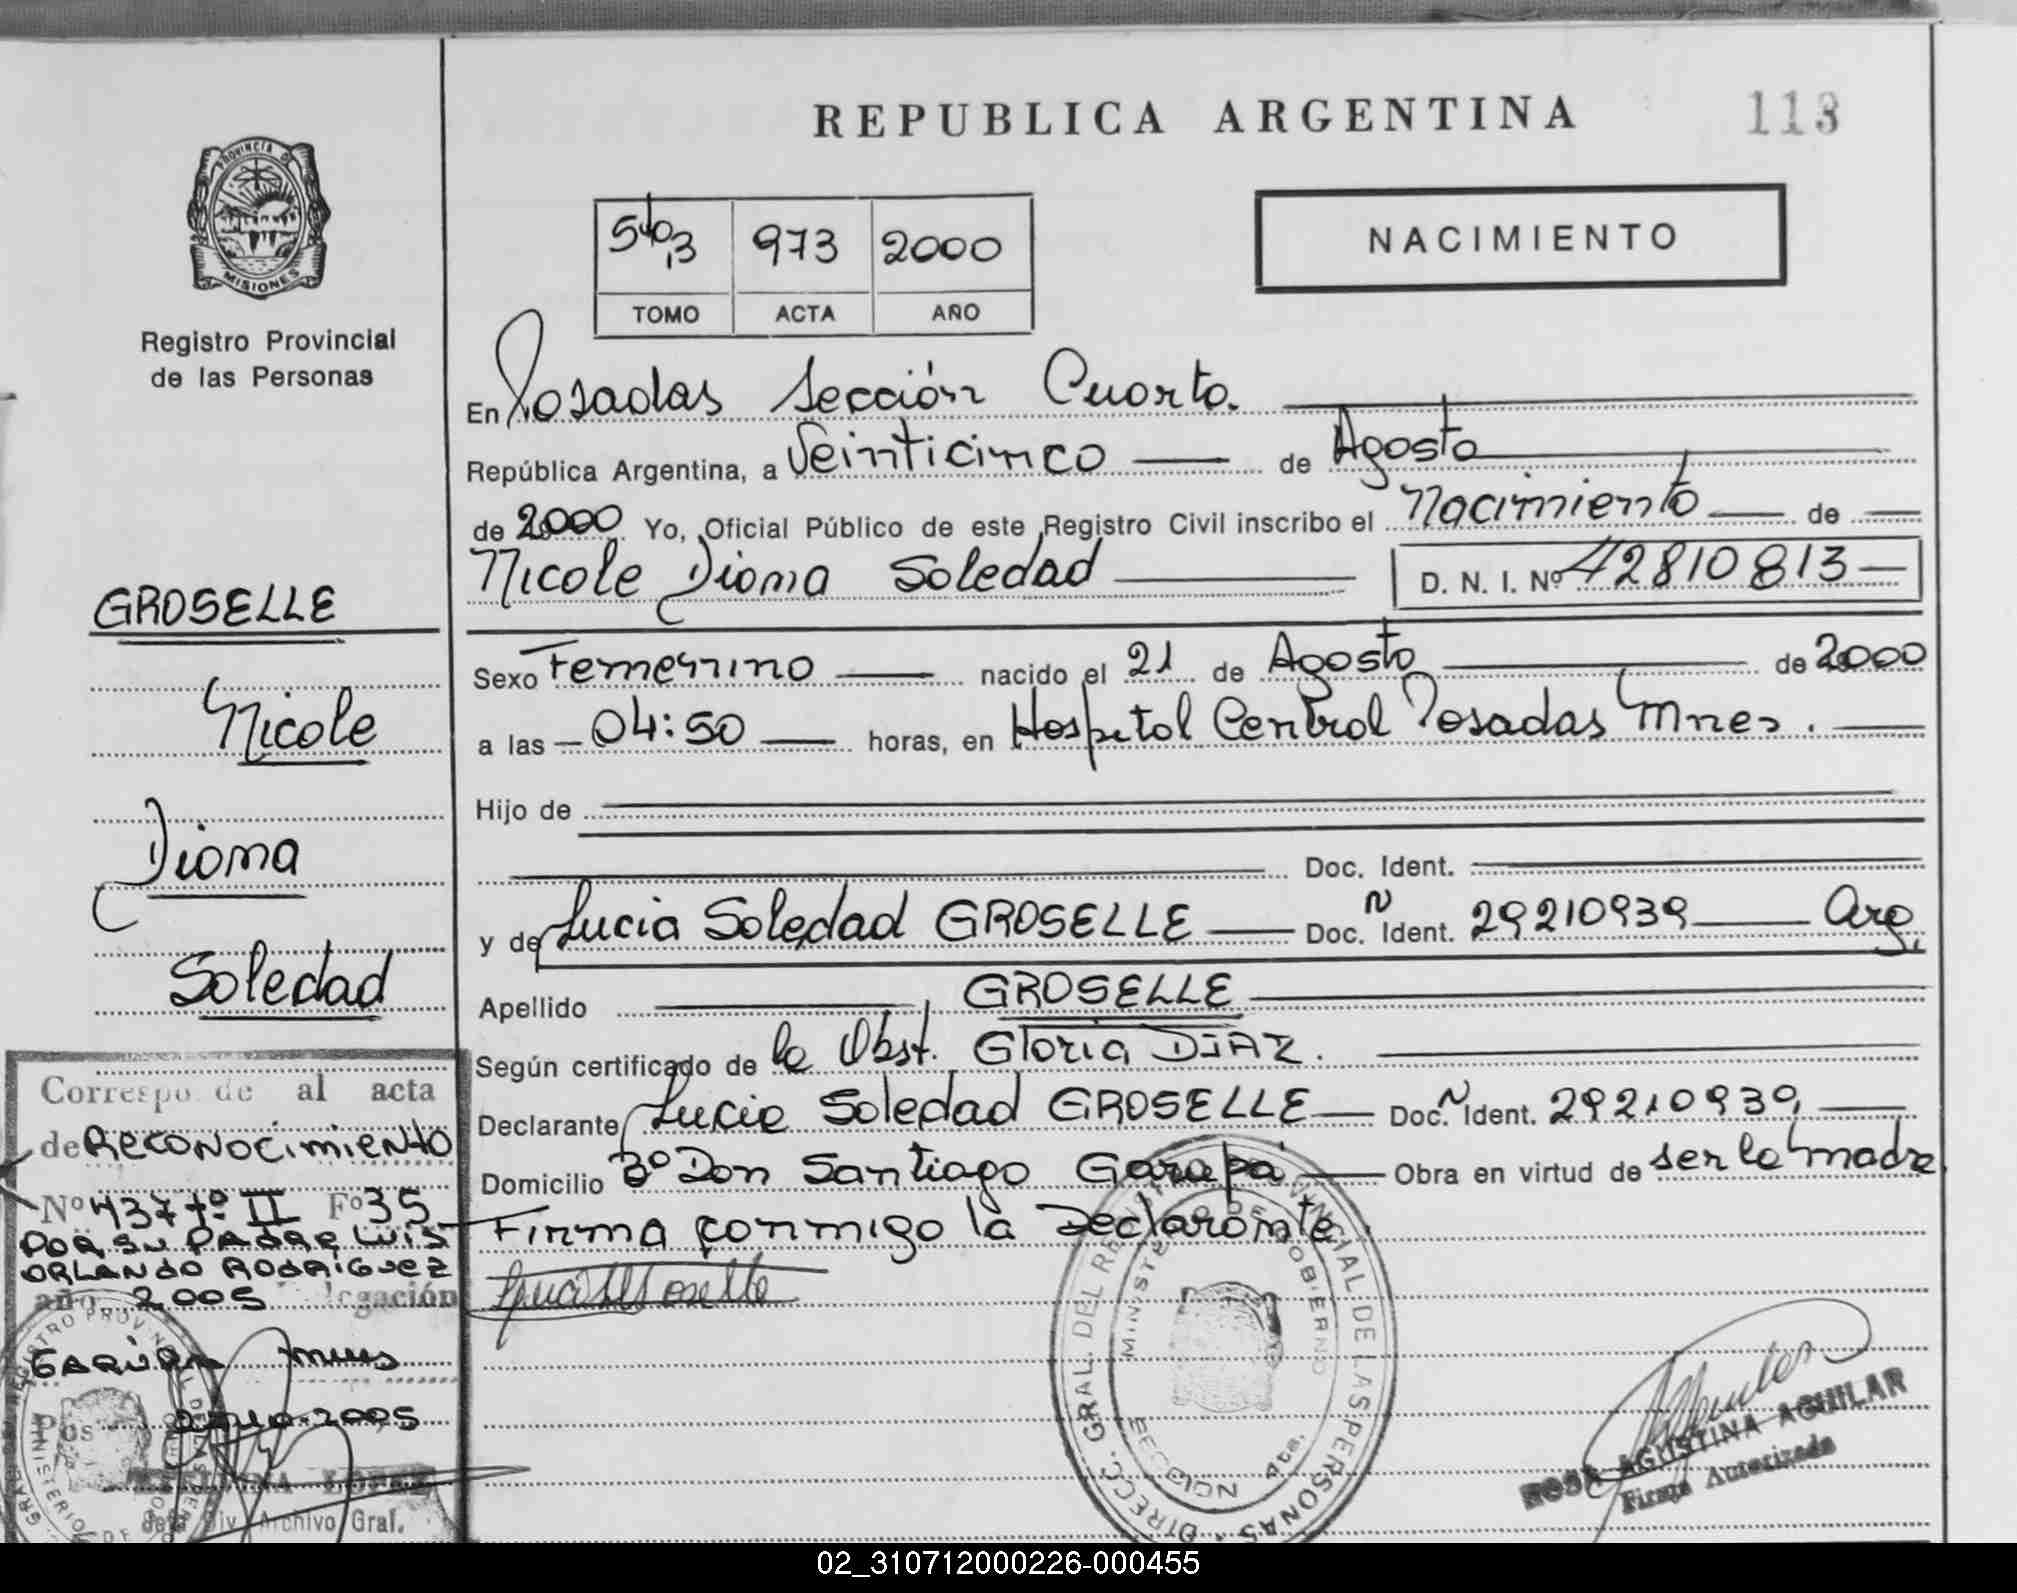 REPUBLICA ARGENTINA
113
PROVINCIA DE
MISIONES
Registro Provincial
de las Personas
973 2000
TOMO ACTA AÑO
NACIMIENTO
En Posadas Sección Cuarta.
República Argentina, a Veinticinco de Agosto
de 2000 Yo, Oficial Público de este Registro Civil inscribo el Nacimiento de
Nicole Diana Soledad D. N. I. Nº 42810813
Sexo Femenino nacido el 21 de Agosto de 2000
a las 04:50 horas, en Hospital Central Posadas Mnes.
Hijo de
Doc. Ident.
y de Lucia Soledad GROSELLE Doc. N Ident. 29210939 Arg.
Apellido GROSELLE
Según certificado de la Obst. Gloria DIAZ.
Declarante Lucia Soledad GROSELLE Doc. N Ident. 29210939
Domicilio Bº Don Santiago Garupá Obra en virtud de ser la madre
Firma conmigo la Declarante.
GROSELLE
Nicole
Diana
Soledad
Correspo de al acta
de Reconocimiento
Nº 437 tº II Fº 35
POR SU PADRE LUIS
ORLANDO RODRIGUEZ
año 2005 legación
GARUPA mnes
Pos 10-2005
LOPEZ
Jefa Div. Archivo Gral.
DIRECC. GRAL. DEL REGISTRO PROVINCIAL DE LAS PERSONAS
MINISTERIO DE GOBIERNO
SECCION 4ta.
AGUSTINA AGUILAR
Firma Autorizada
02_310712000226-000455